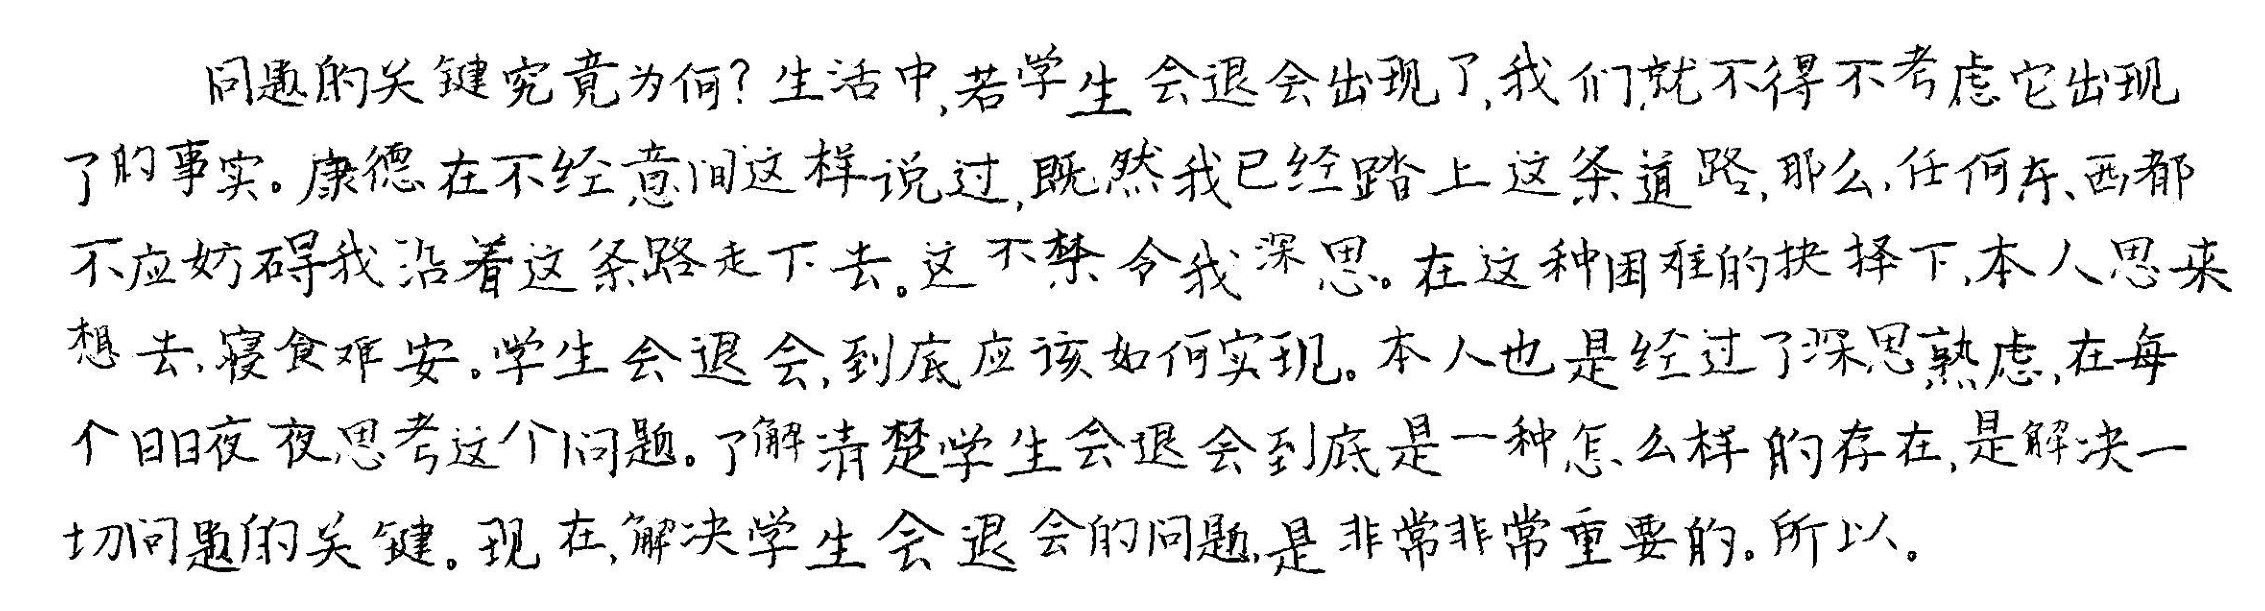 问题的关键究竟为何?生活中,若学生会退会出现了,我们就不得不考虑它出现
了的事实。康德在不经意间这样说过,既然我已经踏上这条道路,那么,任何东西都
不应妨碍我沿着这条路走下去。这不禁令我深思。在这种困难的抉择下,本人思来
想去,寝食难安。学生会退会,到底应该如何实现。本人也是经过了深思熟虑,在每
个日日夜夜思考这个问题。了解清楚学生会退会到底是一种怎么样的存在,是解决一
切问题的关键。现在,解决学生会退会的问题,是非常非常重要的。所以。